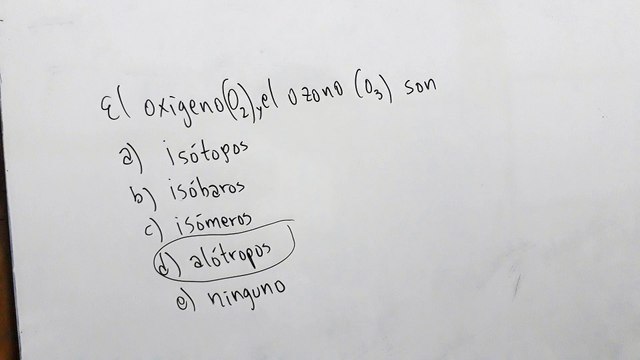 El oxigeno (O₂) y el ozono (O₃) son
a) isótopos
b) isóbaros
c) isómeros
d) alótropos
e) ninguno